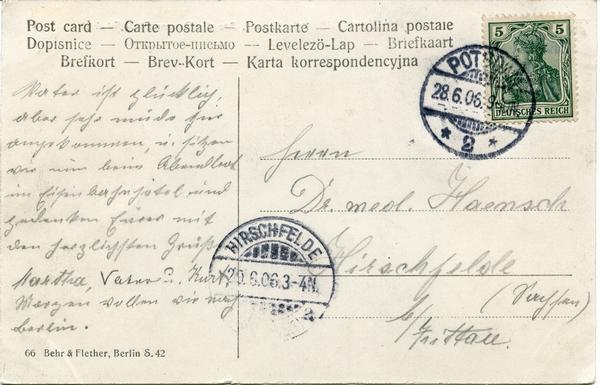 Post card — Carte postale — Postkarte — Cartolina postale
Dopisnice — Открытое-письмо — Levelező-Lap — Briefkaart
Brefkort — Brev-Kort — Karta korrespondencyjna
5 5
DEUTSCHES REICH
28.6.06.
* 2 *
Vater ist glücklich,
aber sehr müde hier
angekommen, u. sitzen
wir nun beim Abendbrot
im Eisenbahnhotel und
gedenken Eurer mit
den herzlichsten Grüßen
Martha, Vater u. Kurt.
Morgen wollen wir nach
Berlin.
Herrn
Dr. med. Haensch
Hirschfelde
(Sachsen)
b/Zittau.
HIRSCHFELDE
29.6.06.3-4N.
66 Behr & Flether, Berlin S. 42